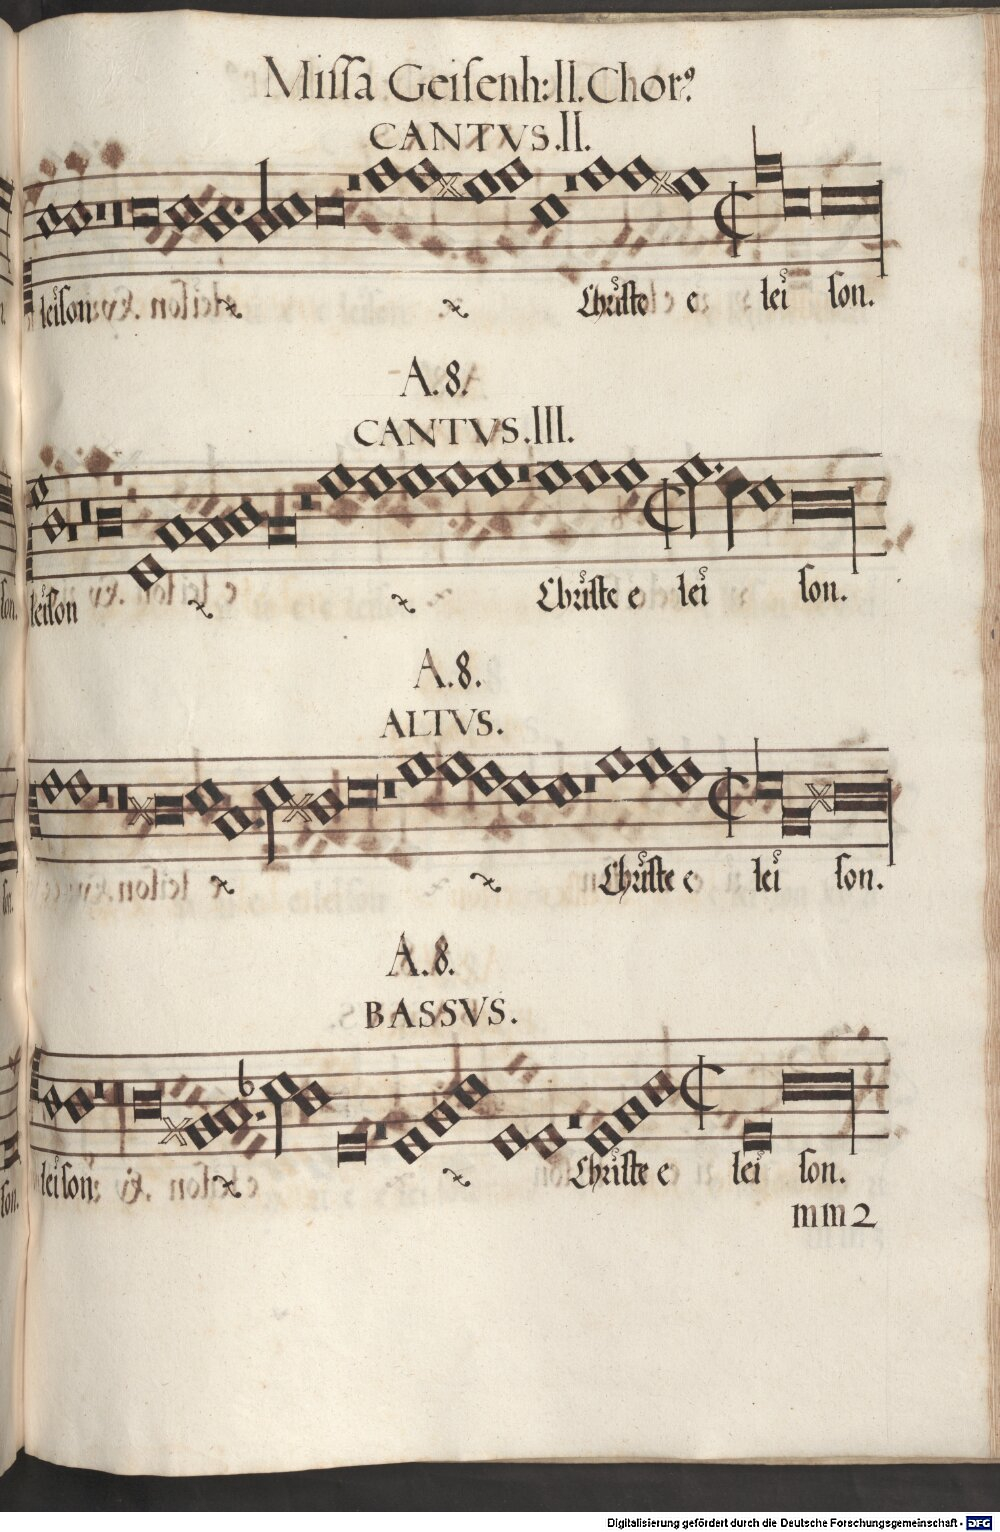 Missa Geisenh: II. Chor⁹.
CANTVS. II.
leison Christe e lei son.
A. 8.
CANTVS. III.
leison Christe e lei son.
A. 8.
ALTVS.
Christe e lei son.
A. 8.
BASSVS.
leison: Christe e lei son.
mm 2
Digitalisierung gefördert durch die Deutsche Forschungsgemeinschaft - DFG